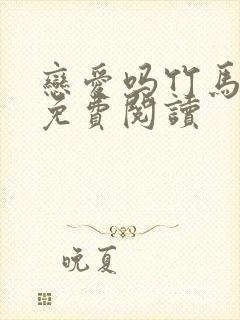 戀愛嗎竹馬
免費閱讀
晚夏